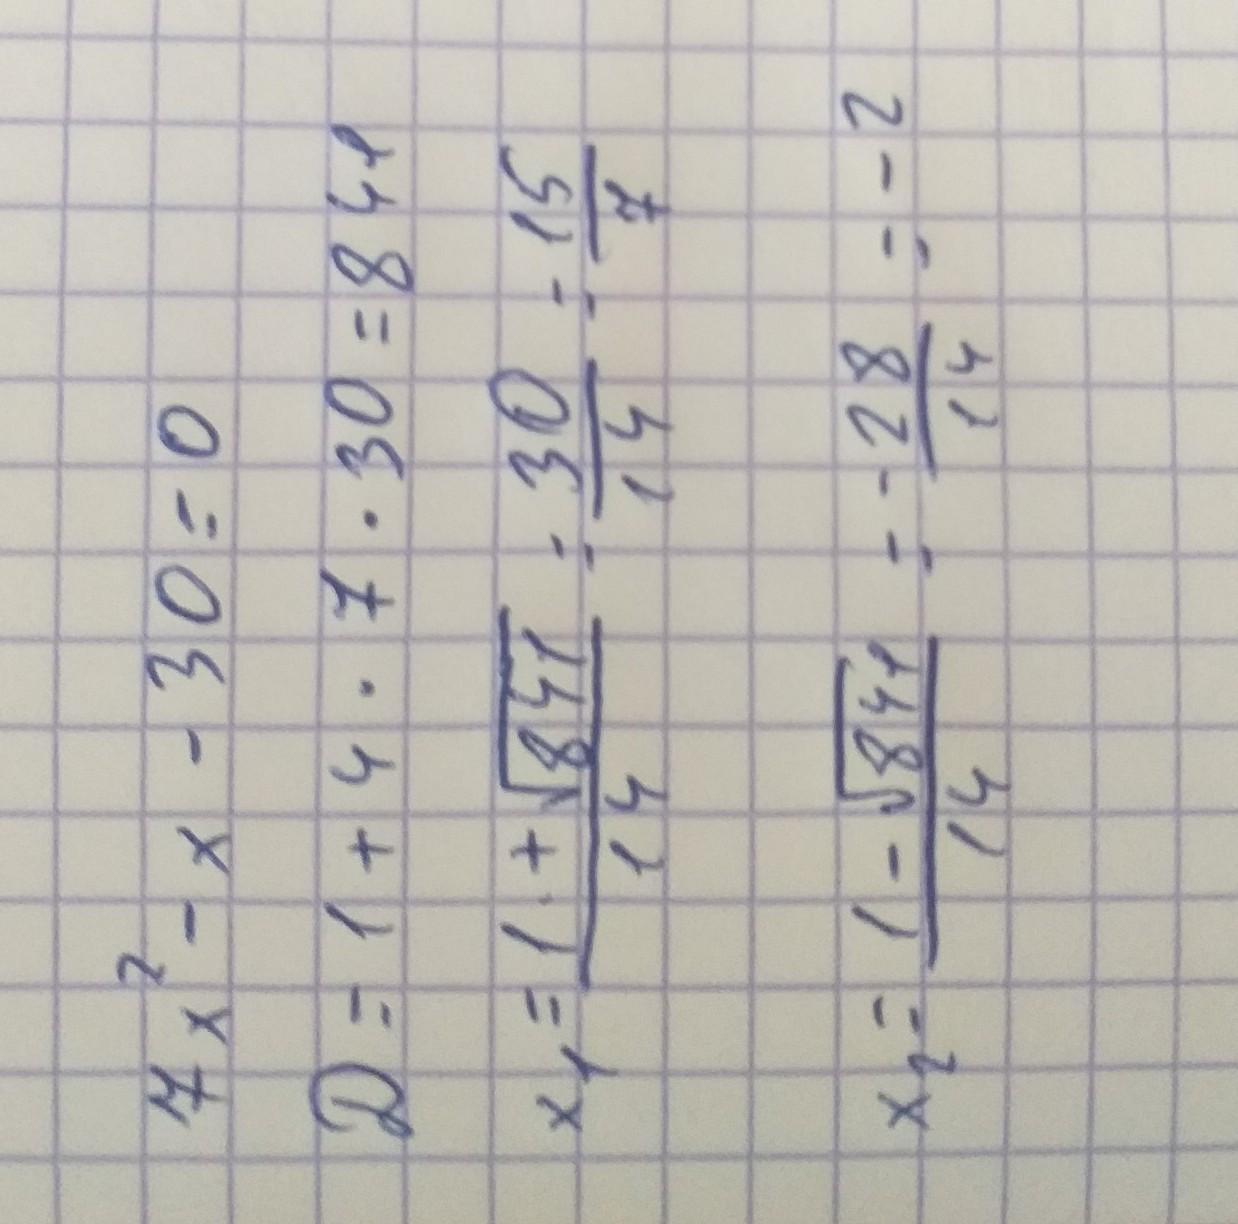 7x² - x - 30 = 0
D = 1 + 4 · 7 · 30 = 841
x₁ = (1 + √841)/14 = 30/14 = 15/7
x₂ = (1 - √841)/14 = -28/14 = -2